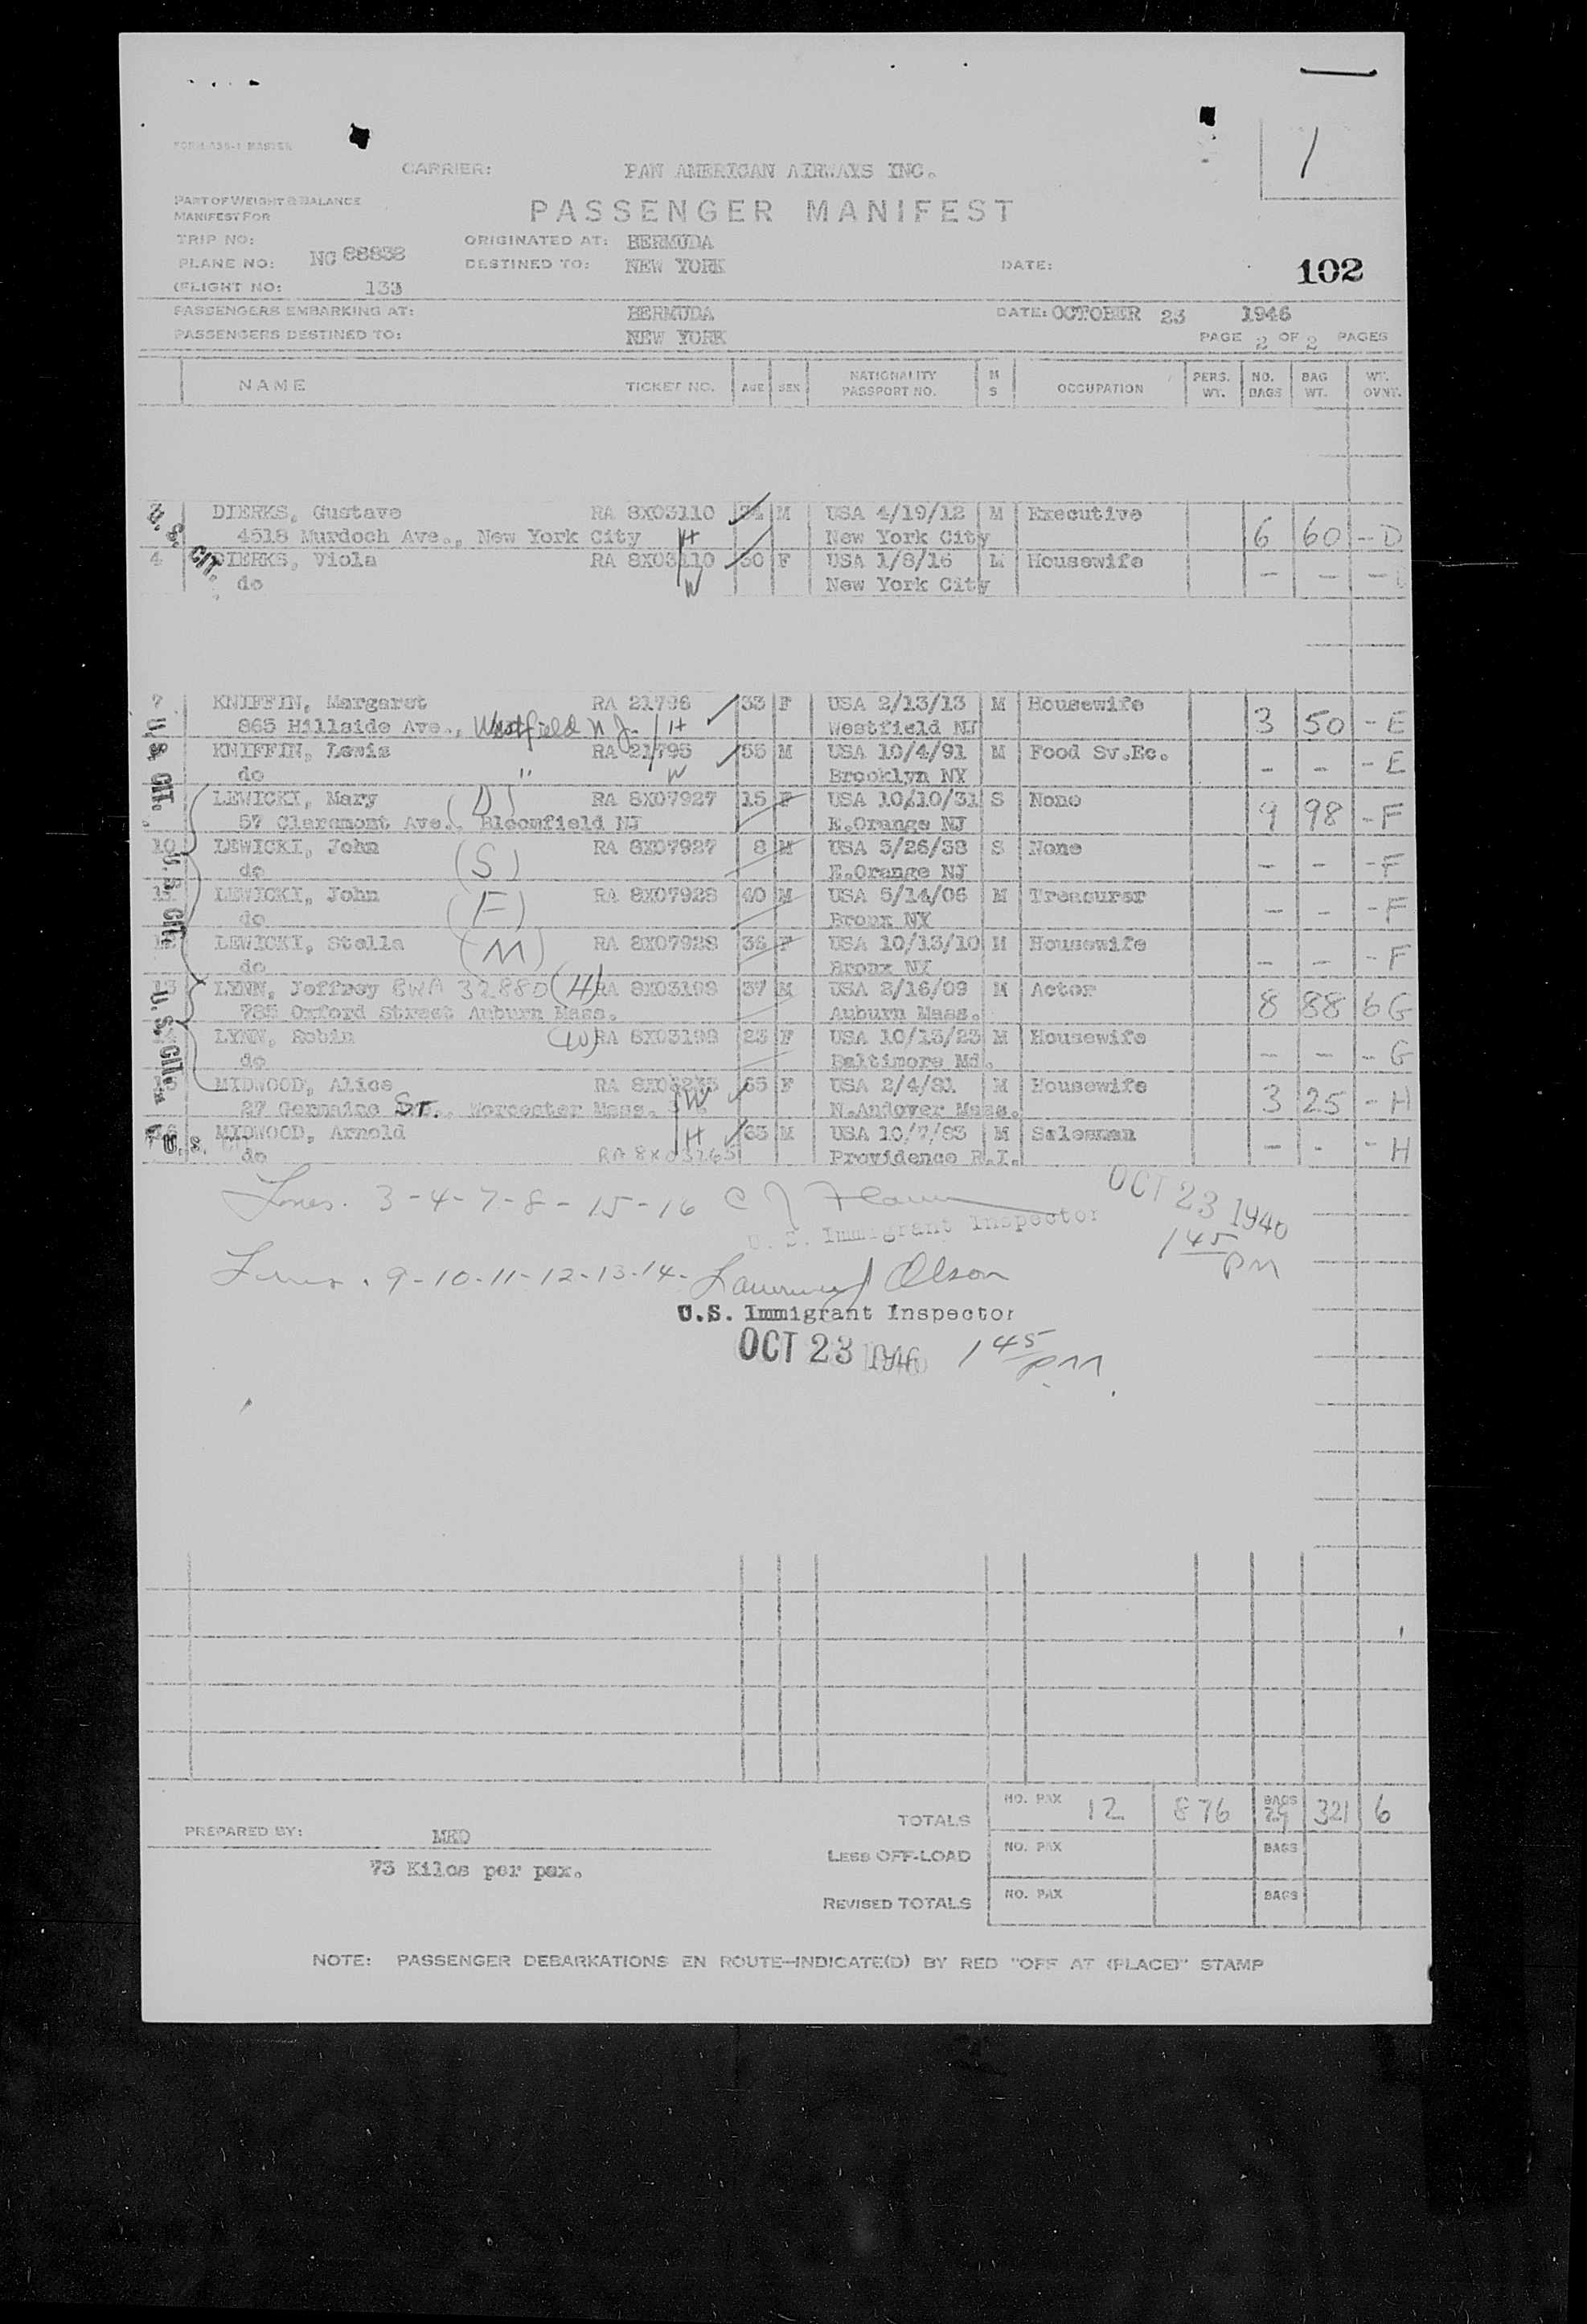 FORM 436-1 MASTER
CARRIER: PAN AMERICAN AIRWAYS INC.
1
PART OF WEIGHT & BALANCE
MANIFEST FOR
PASSENGER MANIFEST
TRIP NO: ORIGINATED AT: BERMUDA
PLANE NO: NC 88838 DESTINED TO: NEW YORK DATE: 102
(FLIGHT NO: 133
PASSENGERS EMBARKING AT: BERMUDA DATE: OCTOBER 23 1946
PASSENGERS DESTINED TO: NEW YORK PAGE 2 OF 2 PAGES
NAME TICKET NO. AGE SEX NATIONALITY PASSPORT NO. M S OCCUPATION PERS. WT. NO. BAGS BAG WT. WT. OVNT.
3 DIERKS, Gustave RA 8X03110 34 M USA 4/19/12 M Executive
4518 Murdoch Ave., New York City H New York City 6 60 - D
U.S. CIT.
4 DIERKS, Viola RA 8X03110 30 F USA 1/8/16 M Housewife
do W New York City - - -
7 KNIFFIN, Margaret RA 21796 33 F USA 2/13/13 M Housewife
865 Hillside Ave., Westfield N.J. H Westfield NJ 3 50 - E
U.S. CIT.
KNIFFIN, Lewis RA 21795 55 M USA 10/4/91 M Food Sv.Ec.
do " W Brooklyn NY - - - E
LEWICKI, Mary (D) RA 8X07927 15 F USA 10/10/31 S None
57 Claremont Ave., Bloomfield NJ E.Orange NJ 9 98 - F
10 LEWICKI, John RA 8X07927 8 M USA 5/26/38 S None
do (S) E.Orange NJ - - - F
U.S. Cit.
11 LEWICKI, John RA 8X07928 40 M USA 5/14/06 M Treasurer
do (F) Bronx NY - - - F
LEWICKI, Stella RA 8X07928 36 F USA 10/13/10 M Housewife
do (M) Bronx NY - - - F
13 LYNN, Jeffrey BWA 32880 (H) RA 8X03198 37 M USA 2/16/09 M Actor
785 Oxford Street Auburn Mass. Auburn Mass. 8 88 6 G
U.S. Cit.
LYNN, Robin (W) RA 8X03198 23 F USA 10/13/23 M Housewife
do Baltimore Md. - - - G
15 MIDWOOD, Alice RA 8X03235 65 F USA 2/4/81 M Housewife
27 Germaine St., Worcester Mass. W N.Andover Mass. 3 25 - H
16 MIDWOOD, Arnold H 63 M USA 10/7/83 M Salesman
U.S.
do RA 8X03265 Providence R.I. - - - H
Lines. 3-4-7-8-15-16 C J
U. S. Immigrant Inspector
OCT 23 1946
1 45 PM
Lines. 9-10-11-12-13-14- Olson
U.S. Immigrant Inspector
OCT 23 1946 1 45 pm
TOTALS NO. PAX 12 876 BAGS 29 321 6
PREPARED BY: MKO
LESS OFF-LOAD NO. PAX BAGS
73 Kilos per pax.
REVISED TOTALS NO. PAX BAGS
NOTE: PASSENGER DEBARKATIONS EN ROUTE—INDICATE(D) BY RED "OFF AT (PLACE)" STAMP